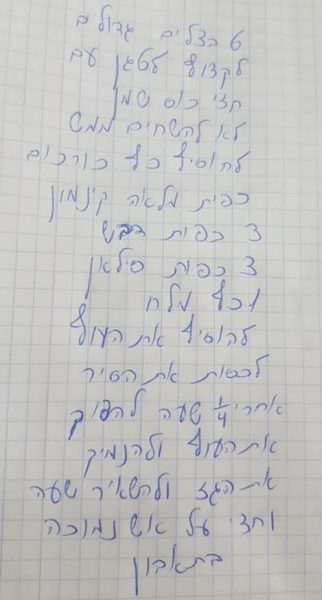 6 בצלים גדולים
לקצוץ לטגן עם
חצי כוס שמן
לא להשחים ממש
להוסיף כף כורכום
כפית מלאה קינמון
3 כפות דבש
3 כפות סילאן
1 כף מלח
להוסיף את העוף
לכסות את הסיר
אחרי 1/4 שעה להפוך
את העוף ולהנמיך
את הגז ולהשאיר שעה
וחצי על אש נמוכה
בתאבון